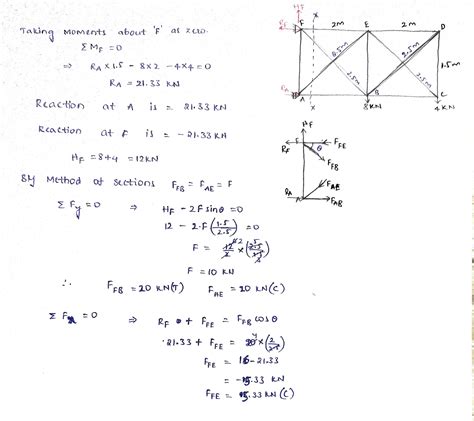 Taking Moments about 'F' as zero.
Σ M_F = 0
⇒ R_A × 1.5 - 8×2 - 4×4 = 0
R_A = 21.33 KN
Reaction at A is = 21.33 KN
Reaction at F is = -21.33 KN
H_F = 8+4 = 12KN
By Method of sections F_FB = F_AE = F
Σ F_y = 0 ⇒ H_F - 2F sinθ = 0
12 - 2.F (1.5/2.5) = 0
F = 12/2 × (2.5/1.5)
F = 10 KN
∴ F_FB = 20 KN(T) F_AE = 20 KN(C)
Σ F_x = 0 ⇒ R_F + F_FE = F_FB cosθ
21.33 + F_FE = 20 × (2/2.5)
F_FE = 16 - 21.33
= -5.33 KN
F_FE = 5.33 KN (C)
R_F F 2m E 2m D
x
2.5m 2.5m
2.5m 1.5m
R_A A x B C
8KN 4 KN
H_F
F θ F_FE
R_F F_FB
R_A F_AE
A F_AB